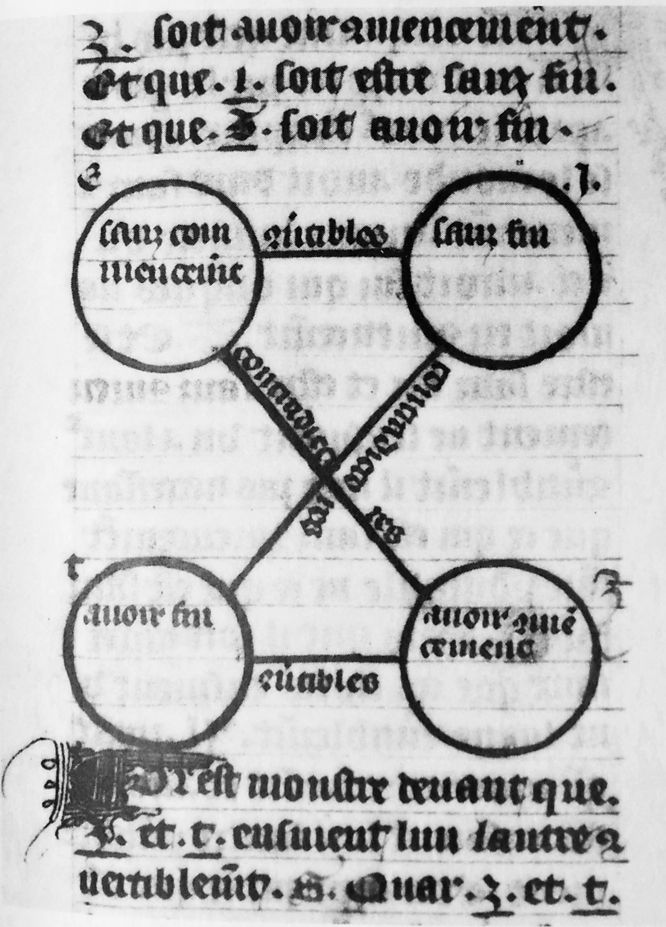 Z. soit auoir ꝯmencem̃t.
Et que. i. soit estre sanz fin.
Et que. t. soit auoir fin.
e
.i.
sanz com
mencem̃t
ꝯũtibles
sanz fin
contradictoi
res
contradictoi
res
t
z
auoir fin
ꝯũtibles
auoir ꝯmẽ
cement
Or est monstre deuant que.
z. et. t. ensuient lun lautre ꝯ
uertiblem̃t. S. Quar. z. et. t.